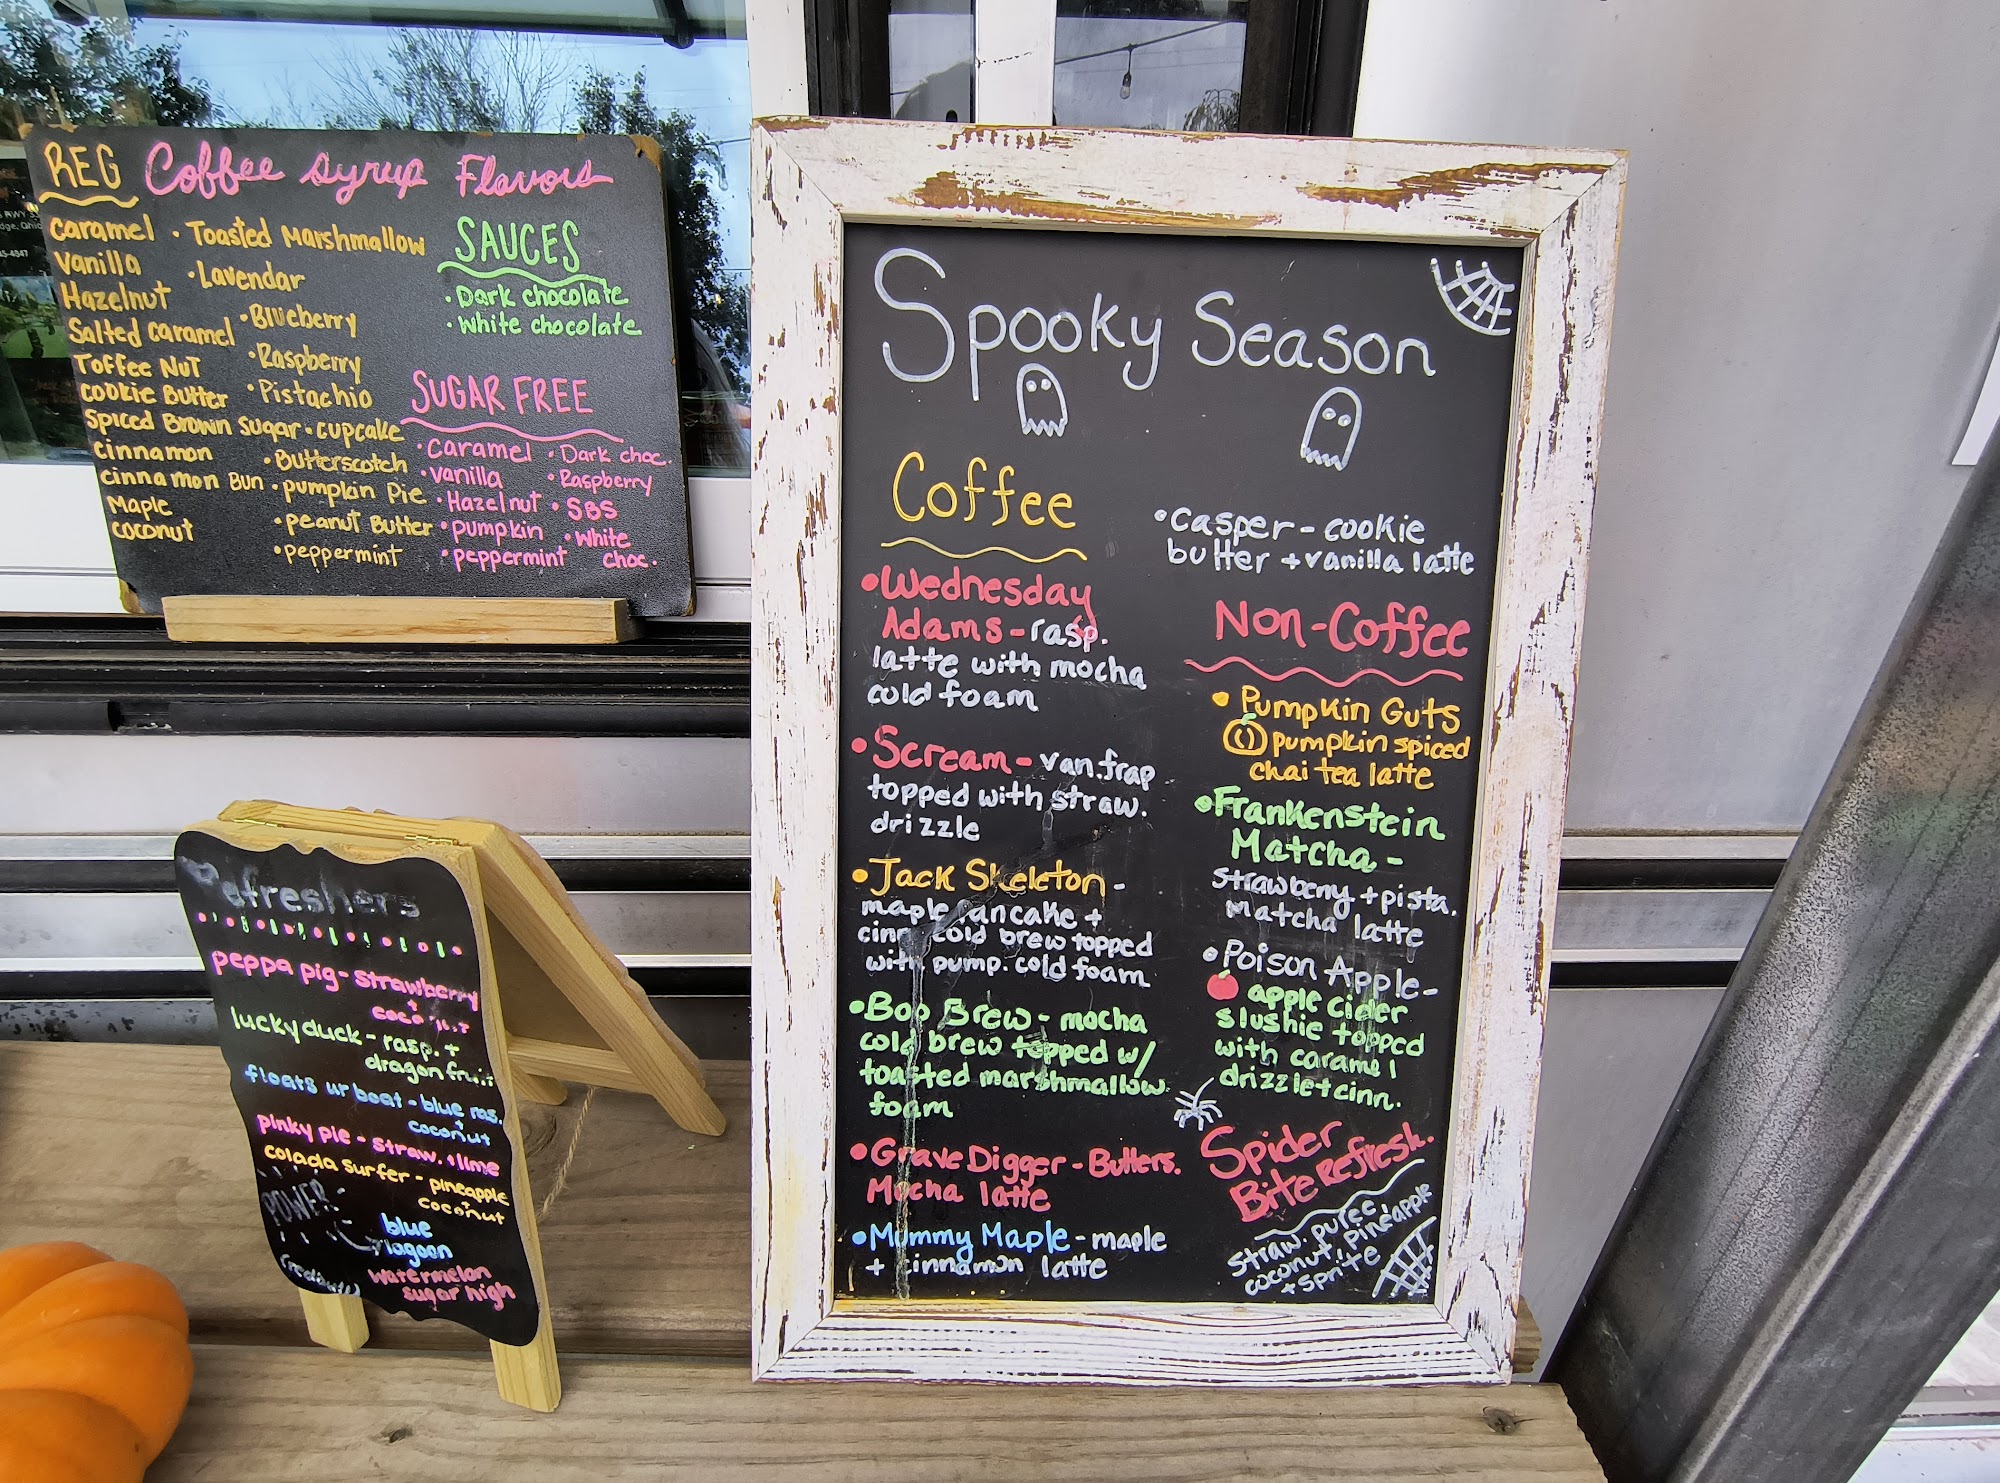 REG Coffee Syrup Flavors
caramel
vanilla
Hazelnut
Salted caramel
Toffee Nut
cookie Butter
Spiced Brown Sugar
cinnamon
cinnamon Bun
Maple
coconut
• Toasted Marshmallow
• Lavendar
• Blueberry
• Raspberry
• Pistachio
• cupcake
• Butterscotch
• pumpkin Pie
• peanut Butter
• peppermint
SAUCES
• Dark chocolate
• white chocolate
SUGAR FREE
• caramel
• vanilla
• Hazelnut
• pumpkin
• peppermint
• Dark choc.
• Raspberry
• SBS
• white
choc.
Refreshers
peppa pig - strawberry
+
coconut
lucky duck - rasp. +
dragon fruit
floats ur boat - blue ras.
+
coconut
pinky pie - straw. + lime
colada surfer - pineapple
+
coconut
POWER
blue
lagoon
watermelon
sugar high
Spooky Season
Coffee
• Wednesday
Adams - rasp.
latte with mocha
cold foam
• Scream - van. frap
topped with straw.
drizzle
• Jack Skeleton -
maple pancake +
cinn. cold brew topped
with pump. cold foam
• Boo Brew - mocha
cold brew topped w/
toasted marshmallow
foam
• Grave Digger - Butters.
Mocha latte
• Mummy Maple - maple
+ cinnamon latte
• Casper - cookie
butter + vanilla latte
Non-Coffee
• Pumpkin Guts
pumpkin spiced
chai tea latte
• Frankenstein
Matcha -
strawberry + pista.
Matcha latte
• Poison Apple -
apple cider
slushie topped
with caramel
drizzle + cinn.
Spider
Bite Refresh.
straw. puree
coconut, pineapple
+ sprite